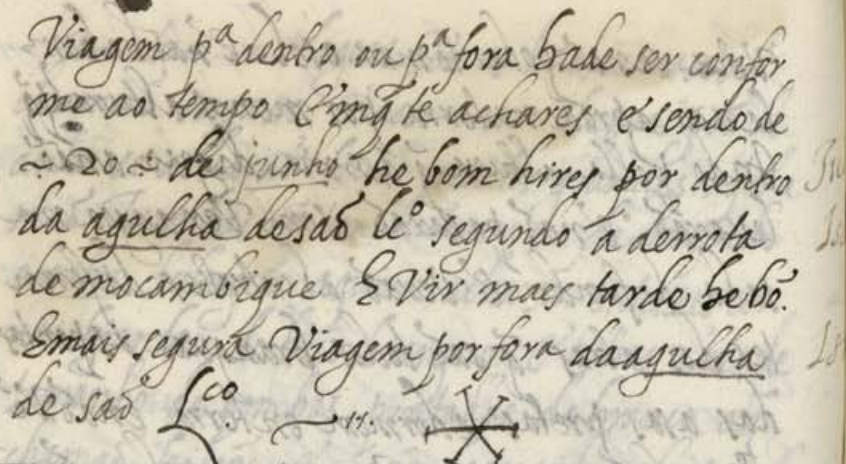 Viagem pª dentro ou pª fora hade ser confor
me ao tempo Em q̃ te achares e sendo de
~ 20 ~ de junho he bom hires por dentro
da agulha de saõ lcº segundo a derrota
de mocambique E Vir maes tarde he bõ.
E mais segura Viagem por fora da agulha
de saõ Lço.